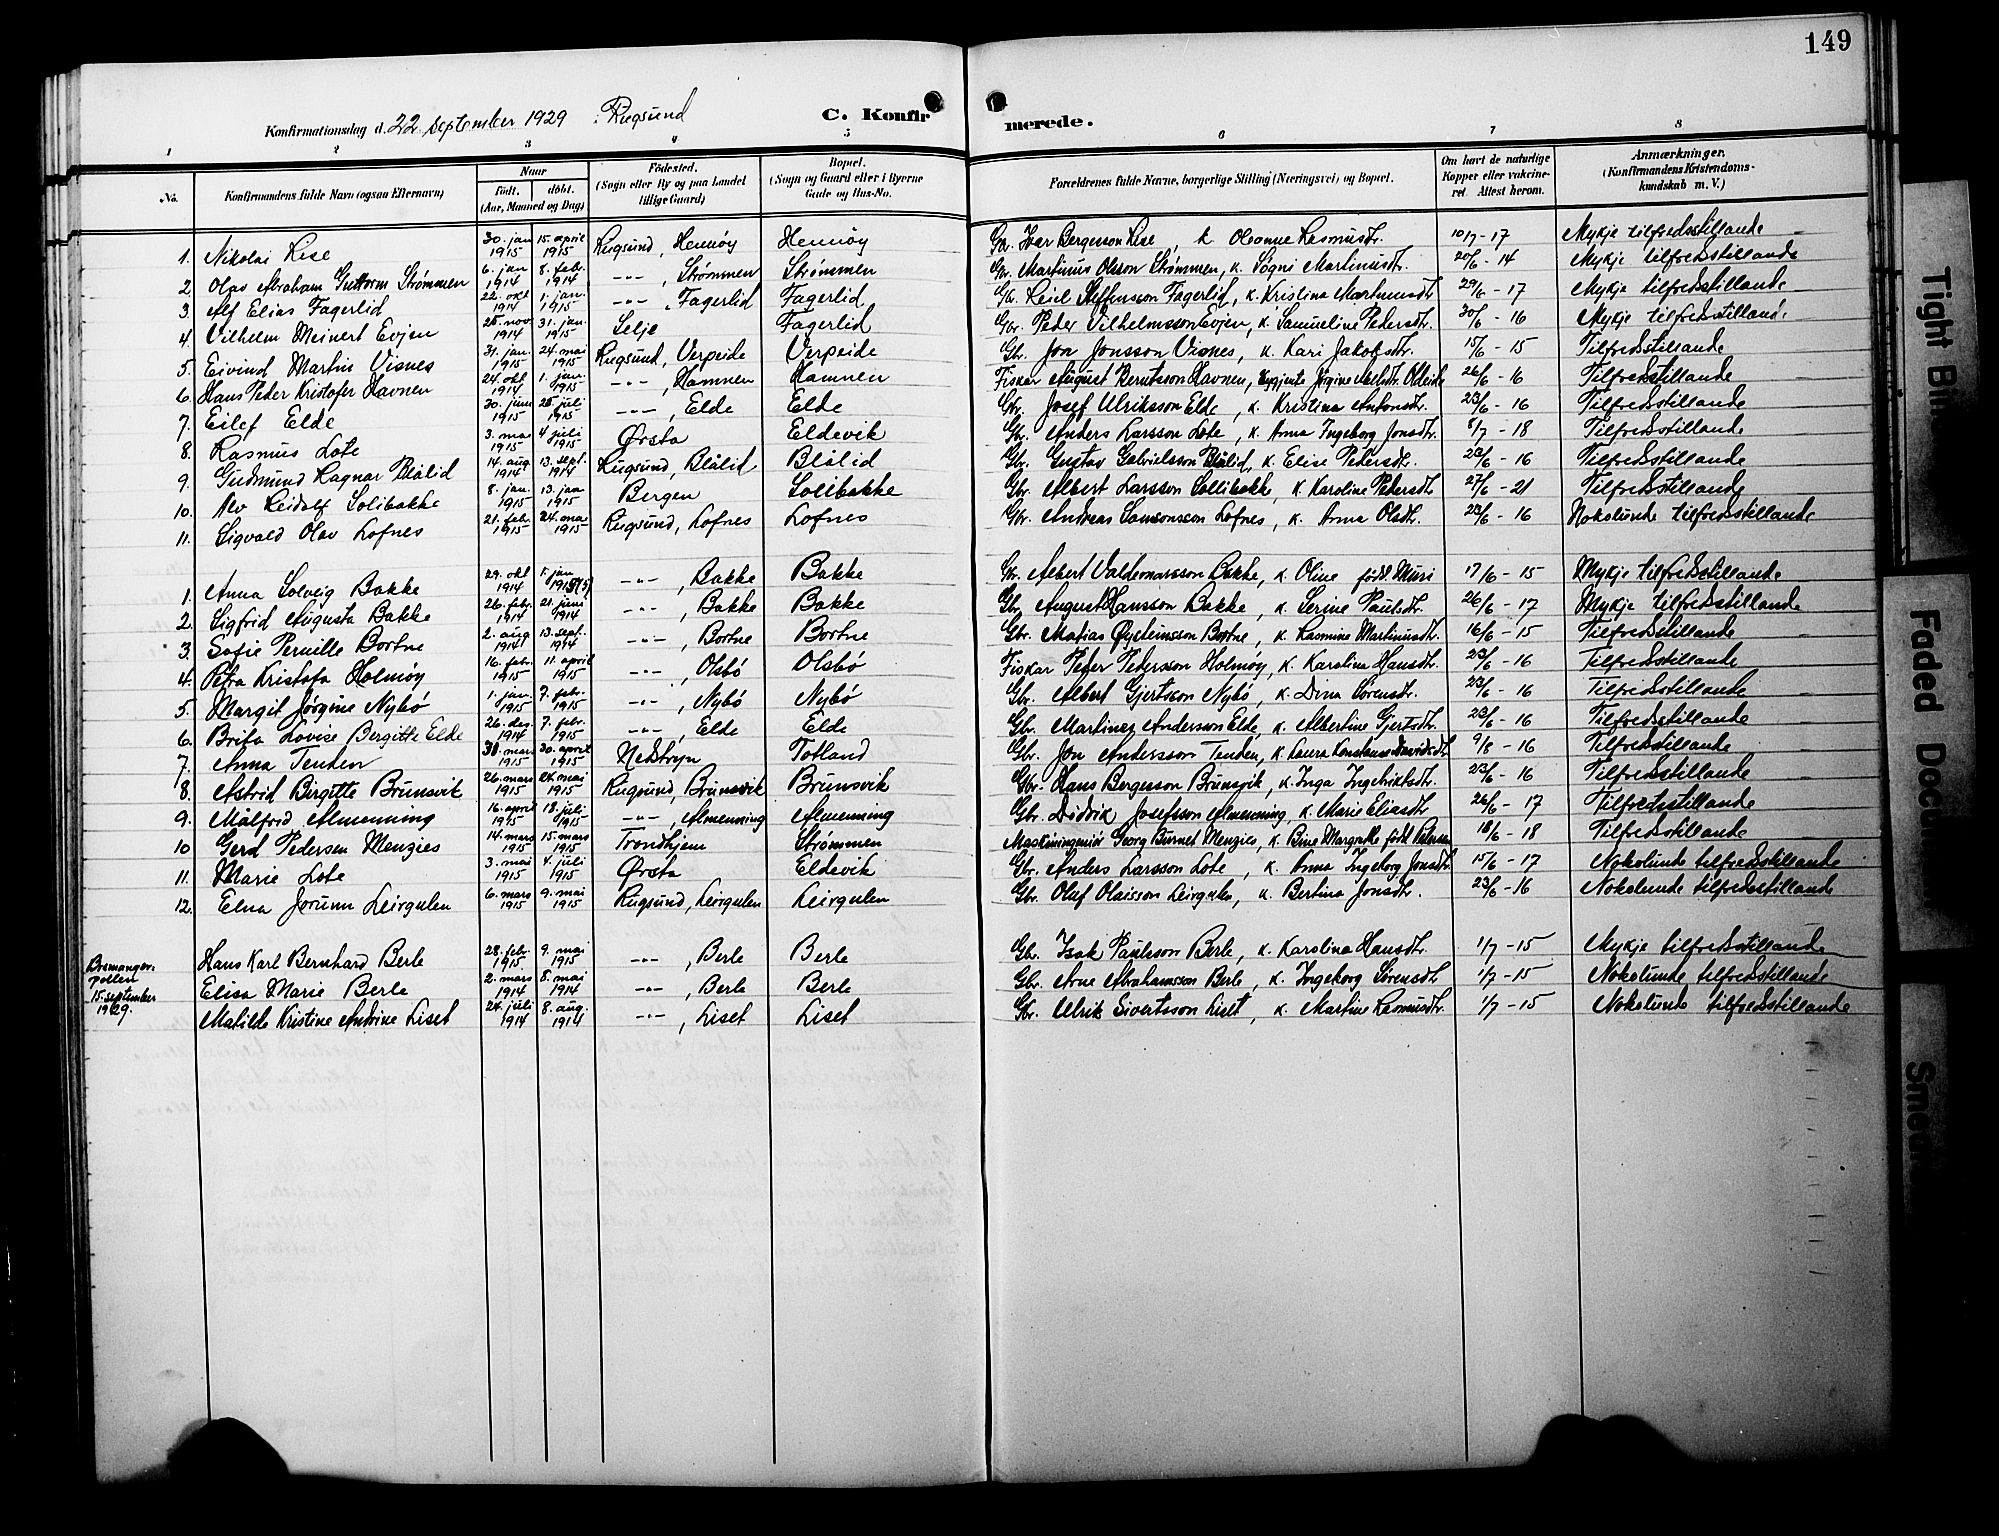 149
Konfirmationsdag d. 22 september 1929 i Rugsund C. Konfirmerede.
1 2 3 4 5 6 7 8
No. Konfirmandens fulde Navn (ogsaa Efternavn) Naar født. døbt. (Aar, Maaned og Dag) Fødested. (Sogn eller By og paa Landet tillige Gaard) Bopæl. (Sogn og Gaard eller i Byerne Gade og Hus-No. Forældrenes fulde Navne, borgerlige Stilling (Næringsvei) og Bopæl. Om havt de naturlige Kopper eller vakcineret. Attest herom. Anmærkninger. (Konfirmandens Kristendomskundskab m. V.)
1. Nikolai Rise 30. jan 1915 15. april 1915 Rugsund, Hennøy Hennøy Gbr. Ivar Bergesson Rise, k. Oleanne Rasmusdtr. 10/7 - 17 Mykje tilfredsstillande
2. Olav Abraham Guttorm Strømmen 6. jan 1914 8. febr. 1914 -"-, Strømmen Strømmen Gbr. Martinus Olsson Strømmen, k. Søgni Martinusdtr. 20/6 - 14 Mykje tilfredsstillande
3. Alf Elias Fagerlid 22. okt 1914 1. jan. 1915 -"-, Fagerlid Fagerlid Gbr. Steffensson Fagerlid, k. Kristina Martinusdtr 29/6 - 17 Mykje tilfredsstillande
4. Vilhelm Meinert Evjen 25. nov. 1914 31. jan. 1915 Selje Fagerlid Gbr. Peder Vilhelmsson Evjen, k. Samueline Pedersdtr. 30/6 - 16 Mykje tilfredsstillande
5. Eivind Martin Visnes 31. jan. 1915 24. mai 1915 Rugsund, Verpeide Verpeide Gbr. Jon Jonsson Visnes, k. Kari Jakobsdtr. 15/6 - 15 Tilfredsstillande
6. Hans Peder Kristofer Havnen 24. okt 1914 1. jan. 1915 -"-, Hamnen Hamnen Fiskar August Berntsson Havnen, Jørgine 26/6 - 16 Tilfredsstillande
7. Eilef Elde 30. juni 1915 25. juli 1915 -"-, Elde Elde Gbr. Josef Ulriksson Elde, k. Kristina Antonsdtr. 23/6 - 16 Tilfredsstillande
8. Rasmus Lote 3. mai 1915 4. juli 1915 Ørsta Eldevik Gbr. Anders Larsson Lote, k. Anna Ingeborg Jonsdtr. 8/7 - 18 Tilfredsstillande
9. Gudmund Ragnar Blålid 14. aug 1914 13. sept. 1914 Rugsund, Blålid Blålid Gbr. Gustav Gabrielsson Blålid, k. Elise Pedersdtr. 23/6 - 16 Tilfredsstillande
10. Alv Reidolf Solibakke 8. jan. 1915 13. jan 1915 Bergen Solibakke Gbr. Albert Larsson Sollibakke, k. Karoline Pedersdtr 27/6 - 21 Tilfredsstillande
11. Sigvald Olav Lofnes 21. febr. 1915 24. mai 1915 Rugsund, Lofnes Lofnes Gbr. Andreas Samsonsson Lofnes, k. Anna Olsdtr. 23/6 - 16 Nokolunde tilfredsstillande
1. Anna Solveig Bakke 29. okt 1914 1. jan 1915 (5) -"-, Bakke Bakke Gbr. Albert Valdemarsson Bakke, k. Oline født Muri 17/6 - 15 Mykje tilfredsstillande
2. Sigfrid Augusta Bakke 26. febr. 1914 21. juni 1914 -"-, Bakke Bakke Gbr. August Hansson Bakke, k. Serine Paulsdtr. 26/6 - 17 Mykje tilfredsstillande
3. Sofie Pernille Bortne 2. aug 1914 13. sept. 1914 -"-, Bortne Bortne Gbr. Matias Øysteinsson Bortne, k. Rasmine Martinusdtr 16/6 - 15 Tilfredsstillande
4. Petra Kristofa Holmøy 16. febr. 1915 11. april 1915 -"-, Olsbø Olsbø Fiskar Peder Pedersson Holmøy, k. Karolina Hansdtr. 23/6 - 16 Tilfredsstillande
5. Margit Jørgine Nybø 1. jan. 1915 7. febr. 1915 -"-, Nybø Nybø Gbr. Albert Gjertsson Nybø, k. Dina Sørensdtr. 23/6 - 16 Tilfredsstillande
6. Brita Lovise Bergitte Elde 26. des. 1914 7. febr. 1915 -"-, Elde Elde Gbr. Martines Andersson Elde, k. Albertine Gjertsdtr 23/6 - 16 Tilfredsstillande
7. Anna Tenden 31. mars 1915 30. april 1915 Nedstryn Totland Gbr. Jon Andersson Tenden, k. Laura Konstanse Davidsdtr 9/8 - 16 Tilfredsstillande
8. Astrid Birgitte Brunsvik 26. mars 1915 24. mai 1915 Rugsund, Brunsvik Brunsvik Gbr. Hans Bergesson Brunsvik, k. Inga Ingebriktsdtr. 23/6 - 16 Tilfredsstillande
9. Målfrid Almenning 16. april 1915 18. juli 1915 -"-, Almenning Almenning Gbr. Didrik Josefsson Almenning, k. Marie Eliasdtr 26/6 - 17 Tilfredsstillande
10 Gerd Pedersen Menzies 14. mars 1915 15. mars 1915 Trondhjem Strømmen Maskiningeniør Georg Burnet Menzies, k. Bine Margrethe født Petersen 18/6 - 18 Tilfredsstillande
11. Marie Lote 3. mai 1915 4. juli 1915 Ørsta Eldevik Gbr. Anders Larsson Lote, k. Anna Ingeborg Jonsdtr 15/6 - 17 Nokolunde tilfredsstillande
12. Elna Jorunn Leirgulen 6. mars 1915 9. mai 1915 Rugsund, Leirgulen Leirgulen Gbr. Oluf Olaisson Leirgulen, k. Bertina Jonsdtr. 23/6 - 16 Nokolunde tilfredsstillande
Bremangerpollen 15. september 1929.
Hans Karl Bernhard Berle 28. febr. 1915 9. mai 1915 -"-, Berle Berle Gbr. Isak Paulsson Berle, k. Karolina Hansdtr. 1/7 - 15 Mykje tilfredsstillande
Elisa Marie Berle 2. mars 1914 8. mai 1914 -"-, Berle Berle Gbr. Arne Abrahamsson Berle, k. Ingeborg Sørensdtr 1/7 - 15 Nokolunde tilfredsstillande
Matilde Kristine Andrine Liset 24. juli 1914 8. aug. 1914 -"-, Liset Liset Gbr. Ulrik Sivertsson Liset, k. Martine Rasmusdtr. 1/7 - 15 Nokolunde tilfredsstillande
Tight Bin
Faded Docu
Sme